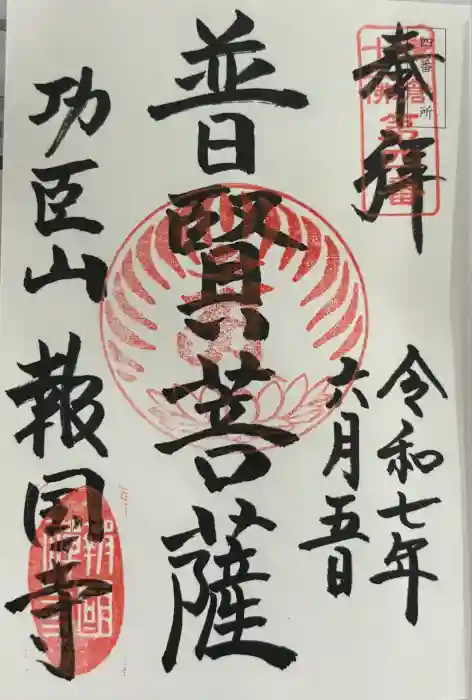 奉拝
四番
札所
令和七年
六月五日
普賢菩薩
功臣山 報国寺